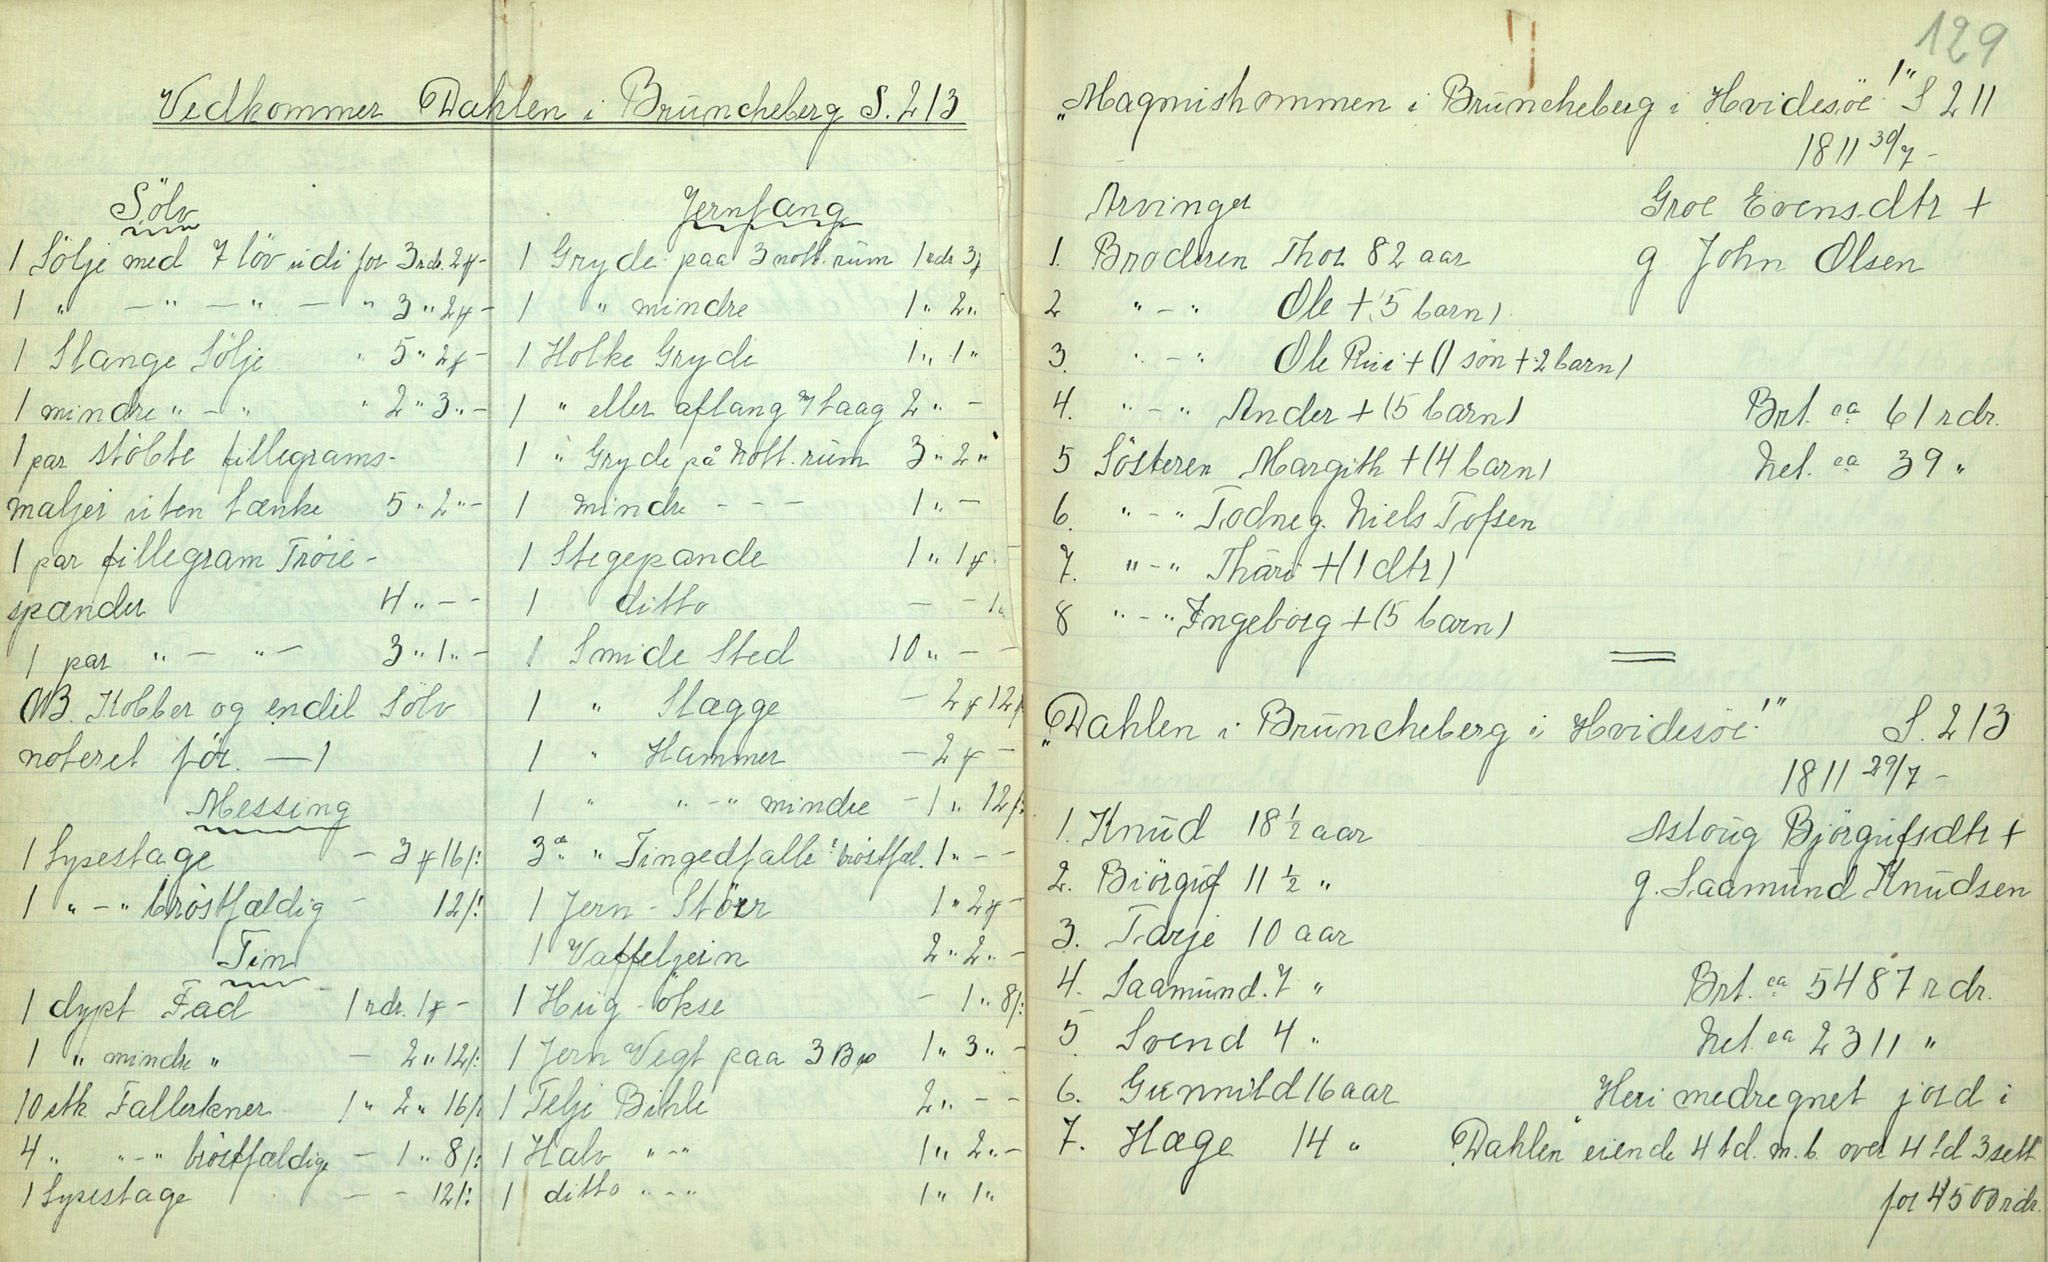 Vedkommer Dahlen i Brüncheberg S. 213
Sölv
1 Sölje med 7 löv udi for 3 rdr. 2 ƒ -
1 " - " - " - " 3 " 2 ƒ -
1 Stange Sölje " 5 " 2 ƒ -
1 mindre " - " " 2 " 3 " -
1 par stöbte fillegrams-
maljer uten lænke 5 " 2 " -
1 par fillegram Tröie-
spænder 4 " - -
1 par " - " - 3 " 1 " -
NB. Kobber og endel Sölv
noteret för. - )
Messing
1 Lysestage - 3 ƒ 16 /:
1 " - " bröstfældig - 12 /:
Tin
1 dypt Fad 1 rdr. 1 ƒ -
1 " mindre " - 2 " 12 /:
10 stk. Tallerkner 1 " 2 " 16 /:
4 " " - " bröstfældige - 1 " 8 /:
1 Lysestage - - 12 /:
Jernfang
1 Gryde paa 3 nott. rüm 1 rdr 3 ƒ
1 " mindre 1 " 2 "
1 Holke Gryde 1 " 1 "
1 " eller aflang m/ laag 2 " -
1 " Gryde på nott. rüm 3 " 2 "
1 mindre - - - 1 " -
1 Stegepande 1 " 1 ƒ
1 ditto - - 1 "
1 Smide Sted 10 " - -
1 " Slægge - 2 ƒ 12 /:
1 " Hammer - 2 ƒ -
1 " " - " mindre - 1 " 12 /:
3 " " Tingedfalle! bröstfæl. 1 " - -
1 Jern - Störer 1 " 2 ƒ -
1 Vaffeljern 2 " 2 " -
1 Hüg - ökse - 1 " 8 /:
1 Jern Vegt paa 3 Bp 1 " 3 " -
1 Telje Bihle 2 " - -
1 Halv " - " 1 " 2 " -
1 ditto " - " 1 " 1 "
129
"Magnushommen i Brüncheberg i Hvidesöe!" S 211
1811 30/7 -
Arvinger Groe Evensdtr +
1. Broderen Thor 82 aar g. John Olsen
2 " - " Ole + (5 barn)
3. " - " Ole Rui + (1 sön + 2 barn)
4. " - " Ander + (5 barn) Brt. ca 61 rdr.
5 Sösteren Margith + (4 barn) Net. ca 39 "
6. " - " Todne g. Niels Tofsen
7. " - " Thāre + (1 dtr)
8 " - " Ingeborg + (5 barn)
"Dahlen i Brüncheberg i Hvidesöe!" S. 213
1811 29/7 -
1. Knüd 18 1/2 aar Asloug Björgufsdtr +
2. Biörguf 11 1/2 " g. Saamünd Knüdsen
3. Tarje 10 aar
4. Saamünd. 7 " Brt. ca 5487 rdr.
5 Svend 4 " Net. ca 2311 "
6. Gunnild 16 aar Heri medregnet jord i
7. Hæge 14 " "Dahlen" eiende 4 td. m. b. over 4 td 3 sett
for 4500 rdr.